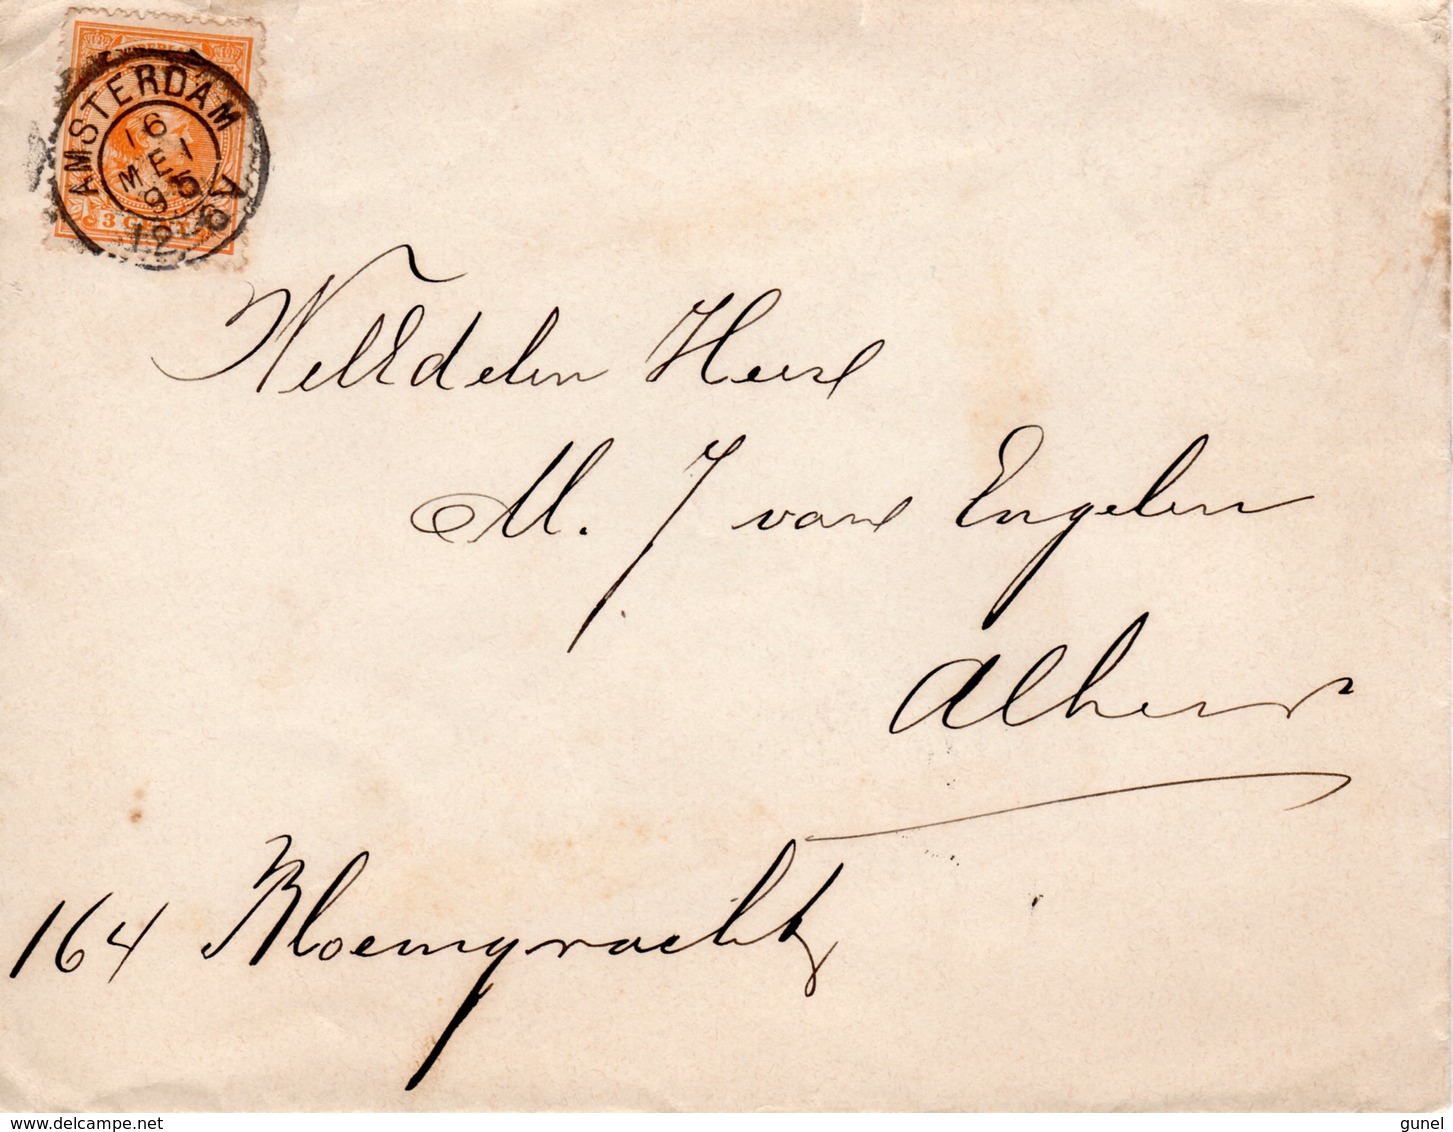 AMSTERDAM
16
MEI
95
12-6V
3 CENT
WelEdelen Heer
M. J van Engelen
Alhier
164 Bloemgracht
www.delcampe.net
gunel